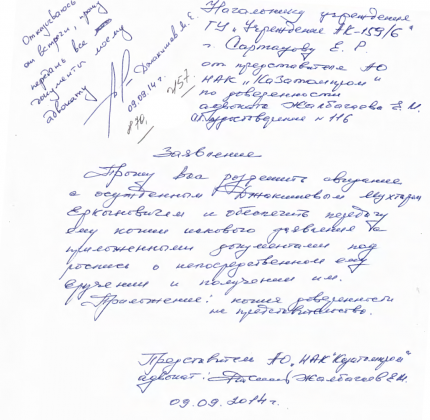 Отказываюсь
от встречи, прошу
передать все
документы моему
адвокату
Джакишев М.Е.
09.09.14г.
Начальнику учреждения
ГУ "Учреждение АК-159/6"
г. Сартаубу Е. Р.
от представителя АО
НАК "Казатомпром"
по доверенности
адвоката Жалбагаева Е.М.
Удостоверение №116
Заявление
Прошу Вас разрешить свидание
с осужденным Джакишевым Мухтаром
Еркыновичем и обеспечить передачу
ему копии искового заявления с
приложенными документами под
роспись о непосредственном ему
вручении и получении им.
Приложение: копия доверенности
на представительство.
Представитель АО "НАК "Казатомпром"
адвокат: Е.М.
09.09.2014г.